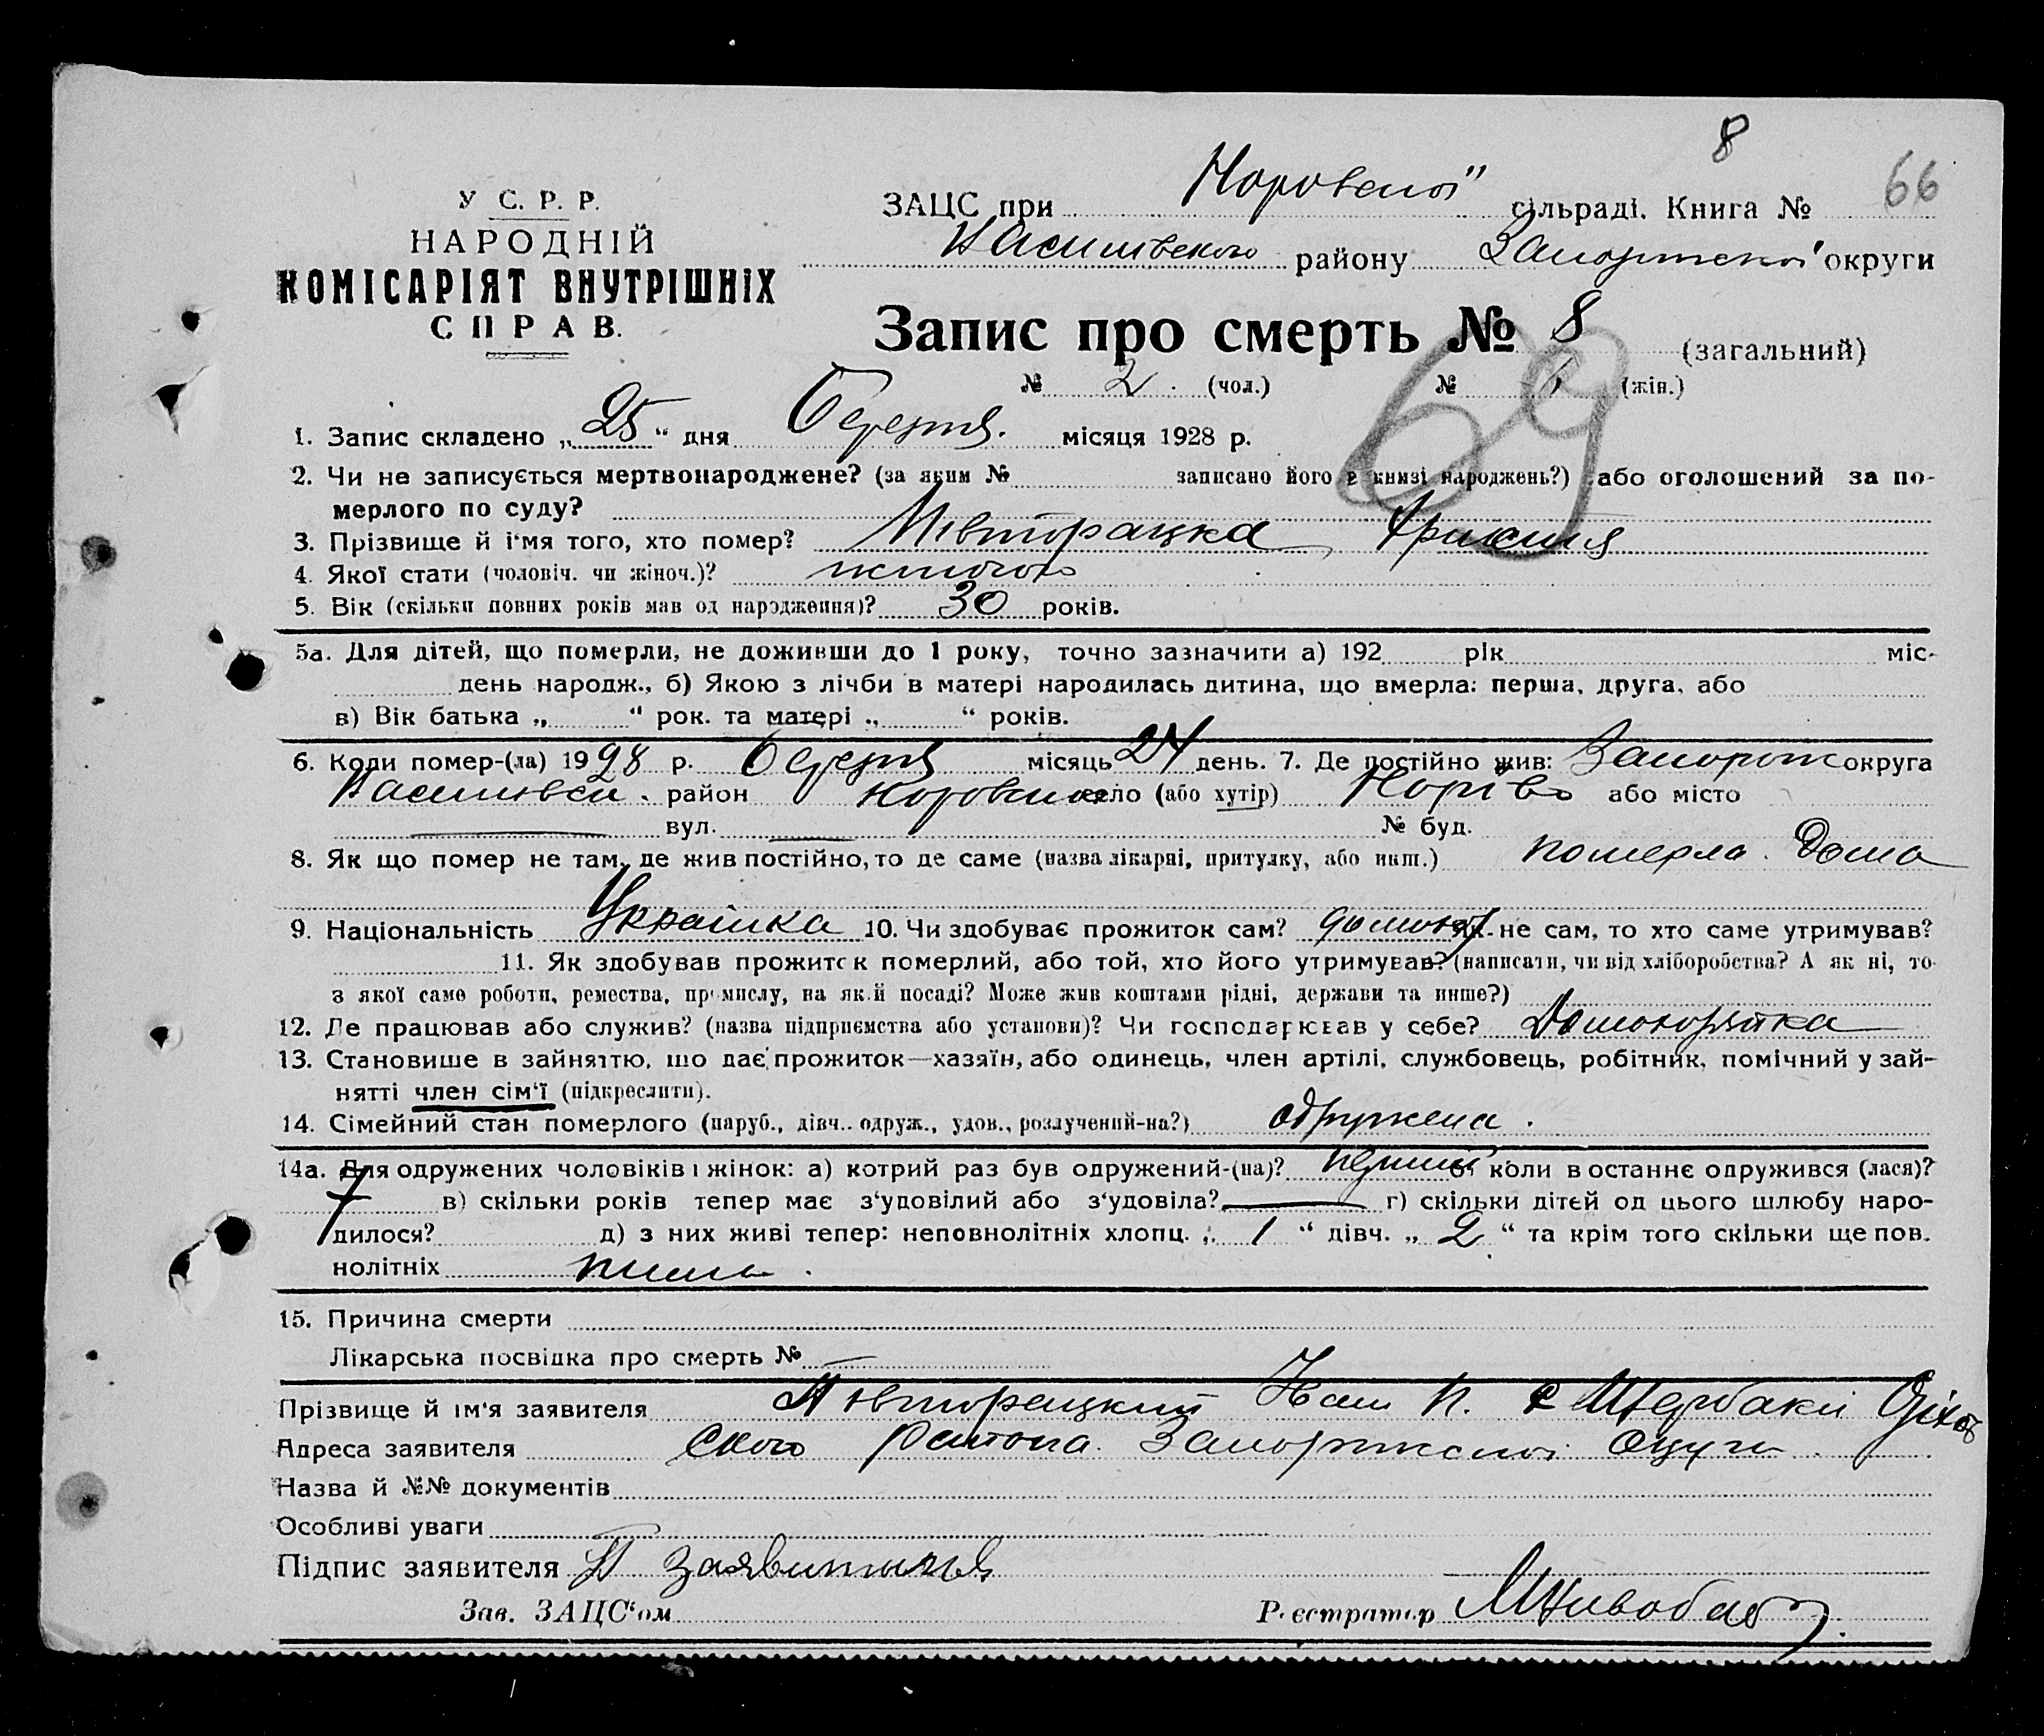 8
66
У С. Р. Р.
НАРОДНІЙ
КОМІСАРІЯТ ВНУТРІШНІХ
СПРАВ.
ЗАЦС при сільраді. Книга №
району Запоризької округи
Запис про смерть № 8 (загальний)
№ 2 (чол.) № 6 (жін.)
69
1. Запис складено „ 25 “ дня Березня. місяця 1928 р.
2. Чи не записується мертвонароджене? (за яким № записано його в книзі народжень?) або оголошений за по-
мерлого по суду?
3. Прізвище й і‘мя того, хто помер? Півторацка
4. Якої стати (чоловіч. чи жіноч.)? жіночого
5. Вік (скільки повних років мав од народження)? 30 років.
5а. Для дітей, що померли, не доживши до 1 року, точно зазначити а) 192 рік міс-
день народж., б) Якою з лічби в матері народилась дитина, що вмерла: перша, друга, або
в) Вік батька „ “ рок. та матері „ “ років.
6. Коли помер-(ла) 1928 р. Березня місяць 24 день. 7. Де постійно жив: Запорож округа
район село (або хутір) або місто
вул. № буд.
8. Як що помер не там, де жив постійно, то де саме (назва лікарні, притулку, або инш.) померла дома
9. Національність Українка 10. Чи здобуває прожиток сам? Як не сам, то хто саме утримував?
11. Як здобував прожиток померлий, або той, хто його утримував? (написати, чи від хліборобства? А як ні, то
з якої саме роботи, ремества, промислу, на якій посаді? Може жив коштами рідні, держави та инше?)
12. Де працював або служив? (назва підприємства або установи)? Чи господарював у себе? Домогорятка
13. Становише в зайняттю, що дає прожиток—хазяїн, або одинець, член артілі, службовець, робітник, помічний у зай-
нятті член сім‘ї (підкреслити).
14. Сімейний стан померлого (паруб., дівч., одруж., удов., розлучений-на?) одружена.
14а. Для одружених чоловіків і жінок: а) котрий раз був одружений-(на)? перший б) коли в останнє одружився (лася)?
7 в) скільки років тепер має з‘удовілий або з‘удовіла? — г) скільки дітей од цього шлюбу наро-
дилося? д) з них живі тепер: неповнолітніх хлопц. „ 1 “ дівч. „ 2 “ та крім того скільки ще пов.
нолітніх
15. Причина смерти
Лікарська посвідка про смерть № —
Прізвище й ім'я заявителя Півторацкий Іван П. с Щербаки Оріхов
Адреса заявителя ского района Запоризької округи
Назва й №№ документів
Особливі уваги
Підпис заявителя П заявитель
Зав. ЗАЦС‘ом Реєстратор